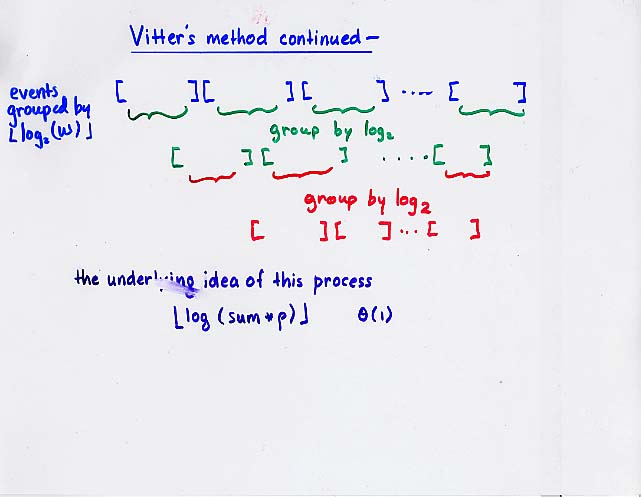 Vitter's method continued—
events
grouped by
⌊log₂(w)⌋
[ ][ ][ ] ..... [ ]
group by log₂
[ ][ ] ....[ ]
group by log₂
[ ][ ]...[ ]
the underlying idea of this process
⌊log (sum * p)⌋ θ(1)